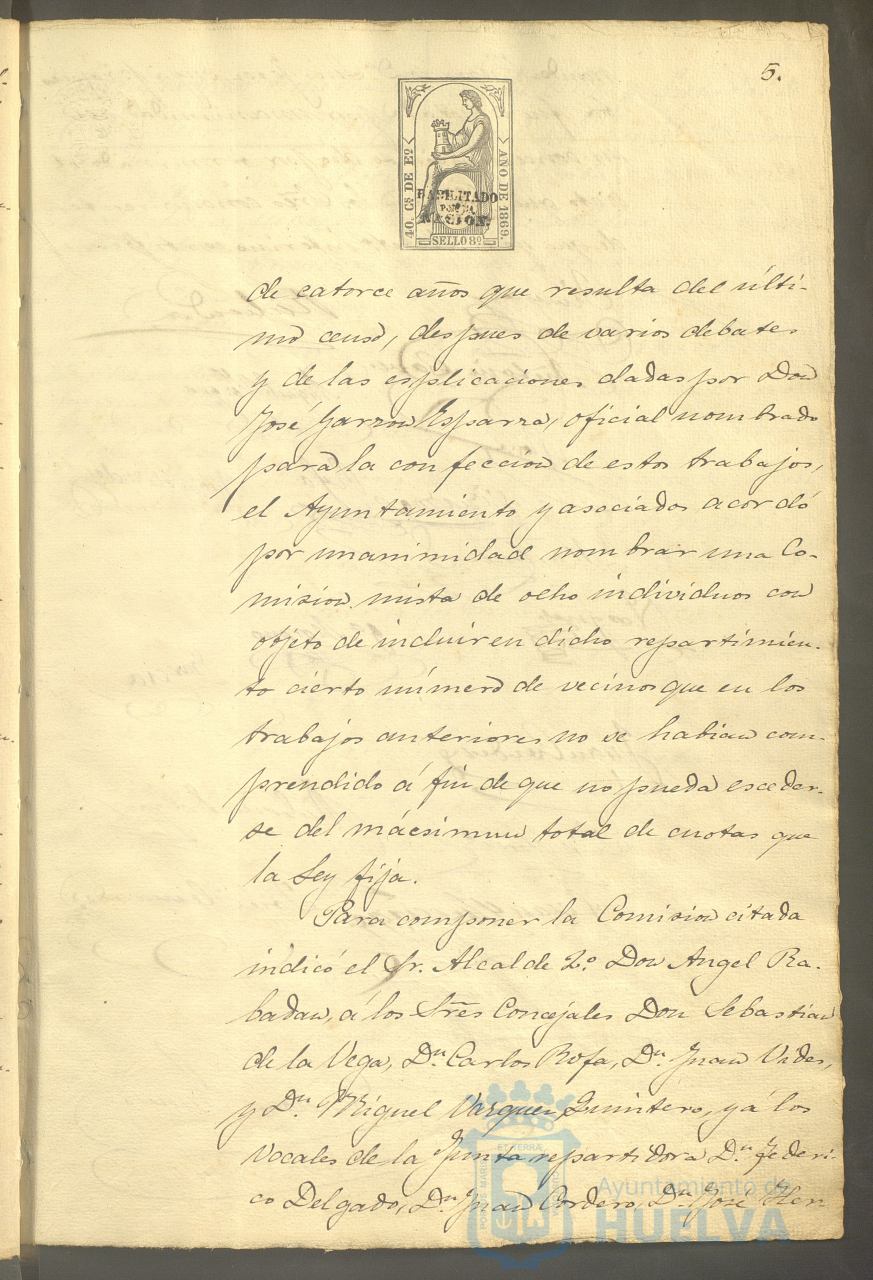 5.
40. Cs DE Eo
AÑO DE 1869.
HABILITADO
POR LA
NACION.
SELLO 8º
de catorce años que resulta del últi-
mo censo, despues de varios debates
y de las esplicaciones dadas por Don
José Garzon Esparza, oficial nombrado
para la confeccion de estos trabajos,
el Ayuntamiento y asociados acordó
por unanimidad nombrar una Co-
mision mista de ocho individuos con
objeto de incluir en dicho repartimien-
to cierto número de vecinos que en los
trabajos anteriores no se habian com-
prendido á fin de que no pueda esceder-
se del mácsimun total de cuotas que
la Ley fija.
Para componer la Comision citada
indicó el Sr. Alcalde 2.º Don Angel Ra-
badan, á los Sres Concejales Don Sebastian
de la Vega, Dn. Carlos Rofa, Dn. Juan Vides,
y Dn. Miguel Vazquez Quintero, y á los
Vocales de la Junta repartidora Dn. Federi-
co Delgado, Dn. Juan Cordero, Dn. José Her
PORTUS MARIS ET TERRÆ
Ayuntamiento de
HUELVA